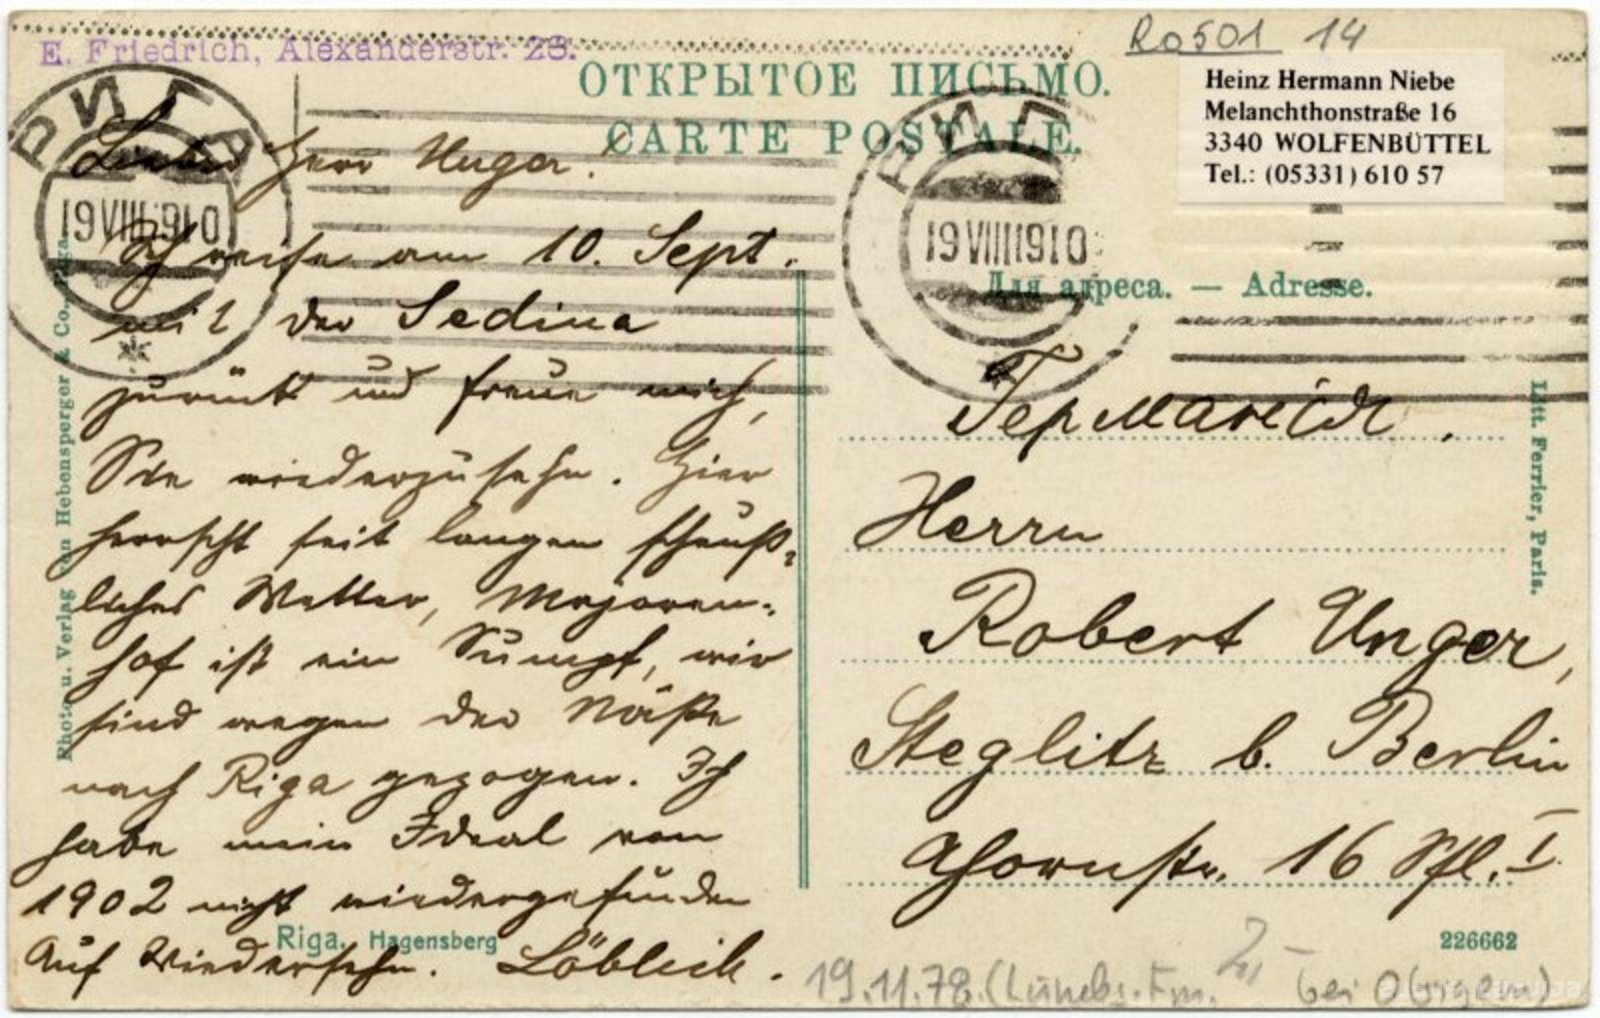 E. Friedrich, Alexanderstr. 28.
Ro501 14
ОТКРЫТОЕ ПИСЬМО.
CARTE POSTALE.
Heinz Hermann Niebe
Melanchthonstraße 16
3340 WOLFENBÜTTEL
Tel.: (05331) 610 57
РИГА
19 VIII 1910
РИГ
19 VIII 1910
Для адреса. — Adresse.
Lieber Herr Unger!
Ich reise am 10. Sept.
mit der Sedina
zurück und freue mich,
Sie wiederzusehn. Hier
herrscht seit langem scheuß-
liches Wetter, Majoren-
hof ist ein Sumpf, wir
sind wegen der Näße
nach Riga gezogen. Ich
habe mein Ideal von
1902 nicht wiedergefunden
Auf Wiedersehn. Löblich.
Германія.
Herrn
Robert Unger,
Steglitz b. Berlin
Ahornstr. 16 I.
Photo u. Verlag von Hebensperger & Co., Riga.
Litt. Ferrier, Paris.
Riga. Hagensberg
226662
19.11.78. bei